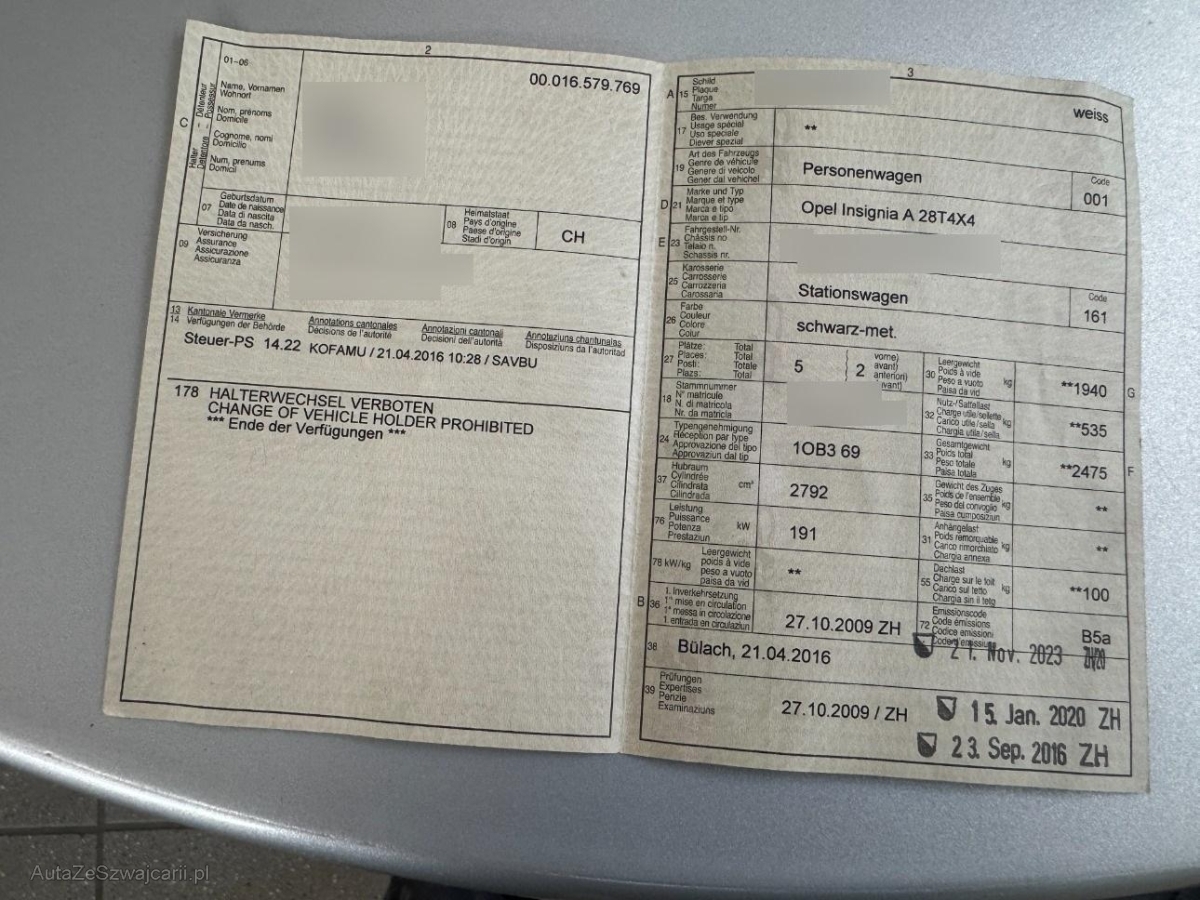 2
01-06
00.016.579.769
C
Halter - Détenteur
Detentore - Possessur
Name, Vornamen
Wohnort
Nom, prénoms
Domicile
Cognome, nomi
Domicilio
Num, prenums
Domicil
07
Geburtsdatum
Date de naissance
Data di nascita
Data da nasch.
08
Heimatstaat
Pays d'origine
Paese d'origine
Stadi d'origin
CH
09
Versicherung
Assurance
Assicurazione
Assicuranza
13 Kantonale Vermerke
14 Verfügungen der Behörde
Annotations cantonales
Décisions de l'autorité
Annotazioni cantonali
Decisioni dell'autorità
Annotaziuns chantunalas
Disposiziuns da l'autoritad
Steuer-PS 14.22 KOFAMU / 21.04.2016 10:28 / SAVBU
178 HALTERWECHSEL VERBOTEN
CHANGE OF VEHICLE HOLDER PROHIBITED
*** Ende der Verfügungen ***
3
A 15
Schild
Plaque
Targa
Numer
weiss
17
Bes. Verwendung
Usage spécial
Uso speciale
Diever spezial
**
19
Art des Fahrzeugs
Genre de véhicule
Genere di veicolo
Gener dal vehichel
Personenwagen
Code
001
D 21
Marke und Typ
Marque et type
Marca e tipo
Marca e tip
Opel Insignia A 28T4X4
E 23
Fahrgestell-Nr.
Châssis no
Telaio n.
Schassis nr.
25
Karosserie
Carrosserie
Carrozzeria
Carossaria
Stationswagen
Code
161
26
Farbe
Couleur
Colore
Colur
schwarz-met.
27
Plätze: Total
Places: Total
Posti: Totale
Plazs: Total
5
2
vorne)
avant)
anteriori)
avant)
30
Leergewicht
Poids à vide
Peso a vuoto
Paisa da vid
kg
**1940
G
18
Stammnummer
N° matricule
N. di matricola
Nr. da matricla
32
Nutz-/Sattellast
Charge utile/sellette
Carico utile/sella
Chargia utila/sella
kg
**535
24
Typengenehmigung
Réception par type
Approvazione del tipo
Approvaziun dal tip
1OB3 69
33
Gesamtgewicht
Poids total
Peso totale
Paisa totala
kg
**2475
F
37
Hubraum
Cylindrée
Cilindrata
Cilindrada
cm³
2792
35
Gewicht des Zuges
Poids de l'ensemble
Peso del convoglio
Paisa cumposiziun
kg
**
76
Leistung
Puissance
Potenza
Prestaziun
kW
191
31
Anhängelast
Poids remorquable
Carico rimorchiato
Chargia annexa
kg
**
78 kW/kg
Leergewicht
poids à vide
peso a vuoto
paisa da vid
**
55
Dachlast
Charge sur le toit
Carico sul tetto
Chargia sin il tetg
kg
**100
B 36
1. Inverkehrsetzung
1re mise en circulation
1a messa in circolazione
1. entrada en circulaziun
27.10.2009 ZH
72
Emissionscode
Code émissions
Codice emissioni
B5a
38
Bülach, 21.04.2016
21. Nov. 2023
39
Prüfungen
Expertises
Perizie
Examinaziuns
27.10.2009 / ZH
15. Jan. 2020 ZH
23. Sep. 2016 ZH
AutaZeSzwajcarii.pl